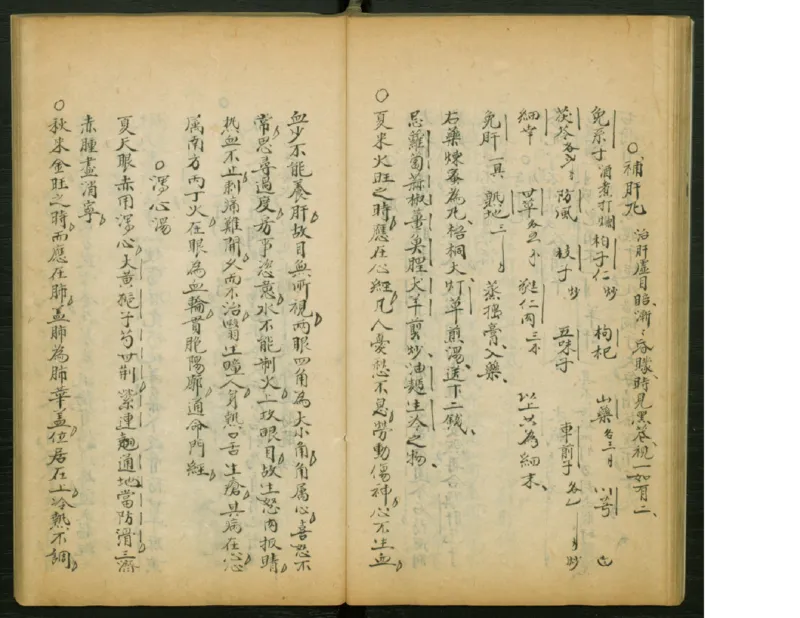 ○補肝丸 治肝虛目昏漸〻昏矇時見黑花視一如有二、
兔系子 酒煮打爛 枸子仁 炒 枸杞 山藥 各三 川芎
茯苓 防風 枝子 炒 五味子 車前子 各 炒
細辛 甘草 仁肉 以上共為細末、
兔肝 一具 熟地 三 蒸搗膏、入藥、
右藥煉蜜為丸、梧桐大灯草煎湯、送下二錢、
忌蘿蔔蒜椒薑魚腥犬羊煎炒油麵生冷之物、
○夏來火旺之時應在心經凡人憂愁不息勞動傷神心不生血
血少不能養肝故目無所視兩眼四角為大小角角属心喜怒不
常思尋過度房事恣意水不能制火上攻眼目故生怒肉扳睛
热血不止刺痛難開久而不治翳上瞳人身熱口舌生瘡其病在心
属南方丙丁火在眼為血輪胃脆陽廓通命門經
○瀉心湯
夏天眼赤用瀉心大黃梔子芍甘荆紫連翹通地當防滑三濟
赤腫盡消寧
○秋來金旺之時而應在肺盖肺為肺華盖位居在上冷熱不調